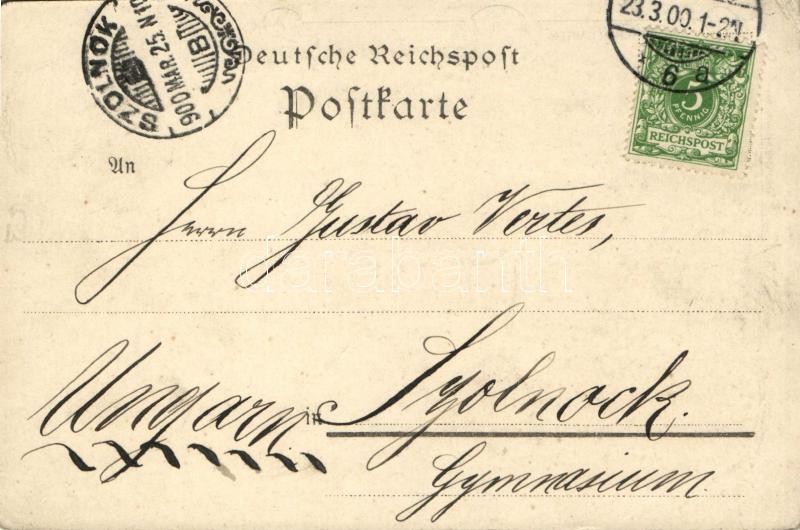 SZOLNOK
900 MÁR. 25. N10
B
23.3.00. 1-2N
6 a
Deutsche Reichspost
Postkarte
5
PFENNIG
REICHSPOST
An
Herrn Gustav Vertes,
darabanth
Ungarn in Szolnock.
Gymnasium